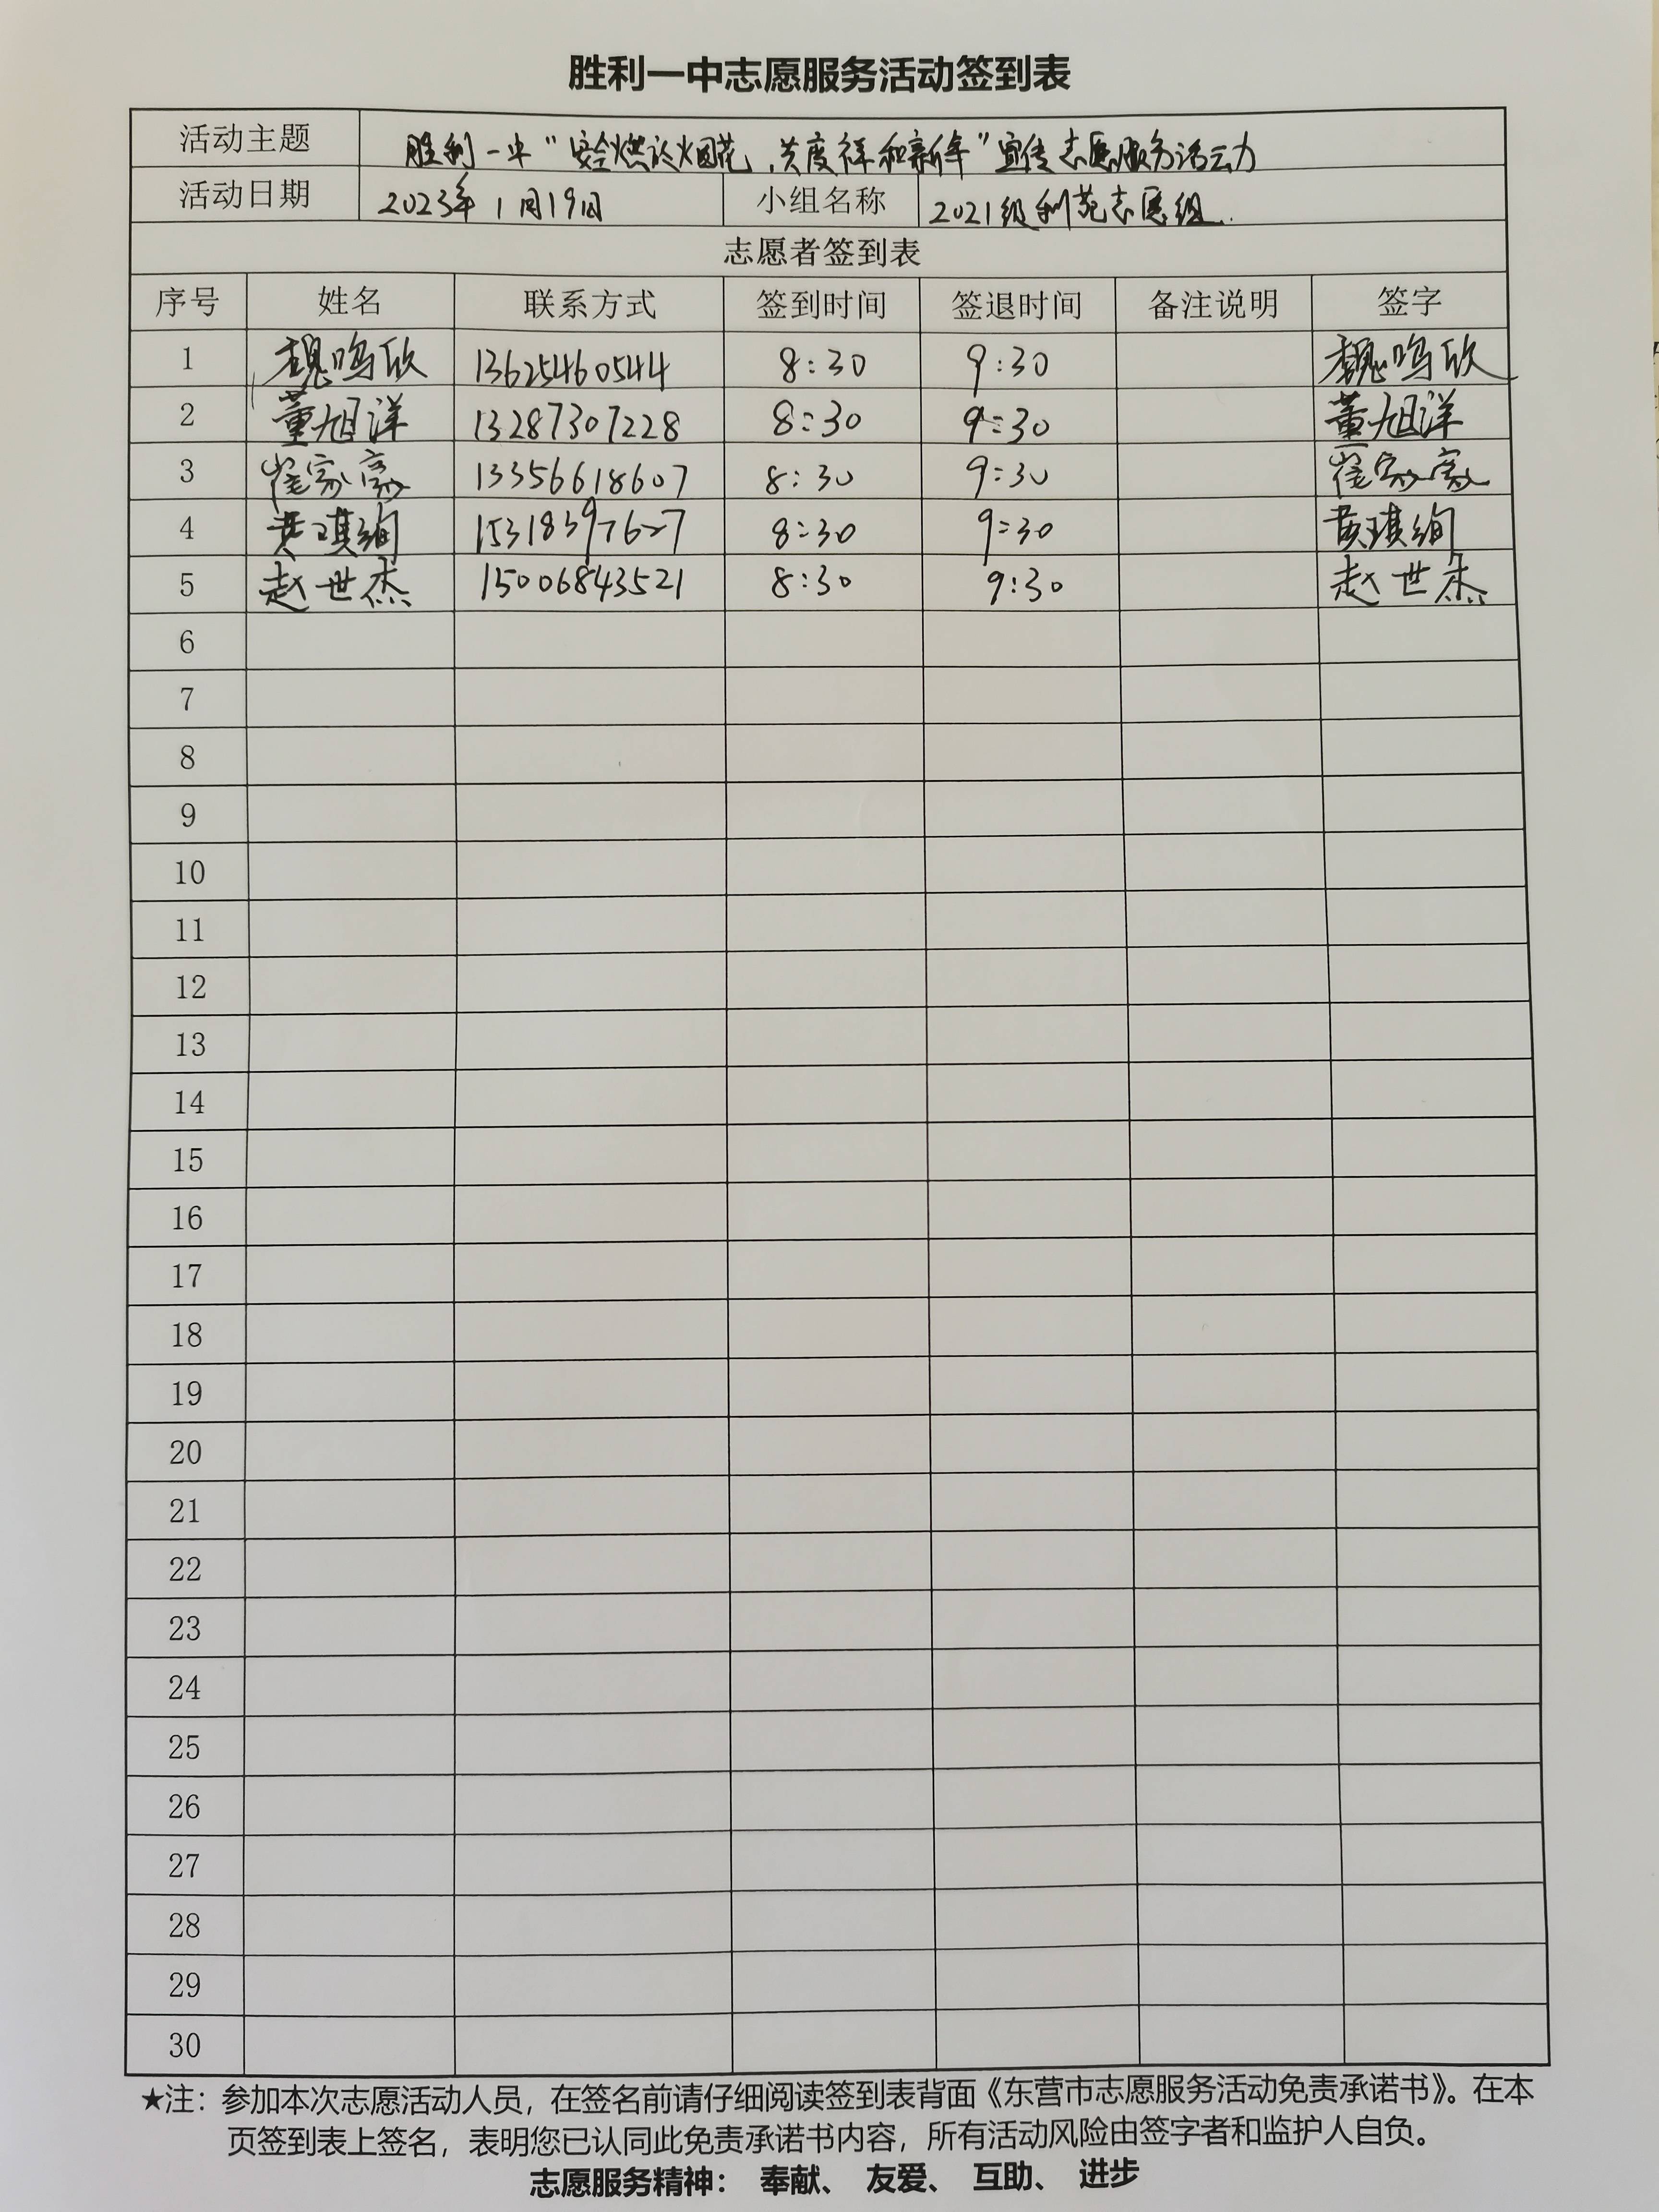 胜利一中志愿服务活动签到表
活动主题 胜利一中“安全燃放烟花,共度祥和新年”宣传志愿服务活动
活动日期 2023年1月19日 小组名称 2021级利苑志愿组
志愿者签到表
序号 姓名 联系方式 签到时间 签退时间 备注说明 签字
1 魏鸣欣 13625460544 8:30 9:30 魏鸣欣
2 董旭洋 13287307228 8:30 9:30 董旭洋
3 崔家豪 13356618607 8:30 9:30 崔家豪
4 黄琪绚 15318397627 8:30 9:30 黄琪绚
5 赵世杰 15006843521 8:30 9:30 赵世杰
6
7
8
9
10
11
12
13
14
15
16
17
18
19
20
21
22
23
24
25
26
27
28
29
30
★注：参加本次志愿活动人员，在签名前请仔细阅读签到表背面《东营市志愿服务活动免责承诺书》。在本
页签到表上签名，表明您已认同此免责承诺书内容，所有活动风险由签字者和监护人自负。
志愿服务精神： 奉献、 友爱、 互助、 进步